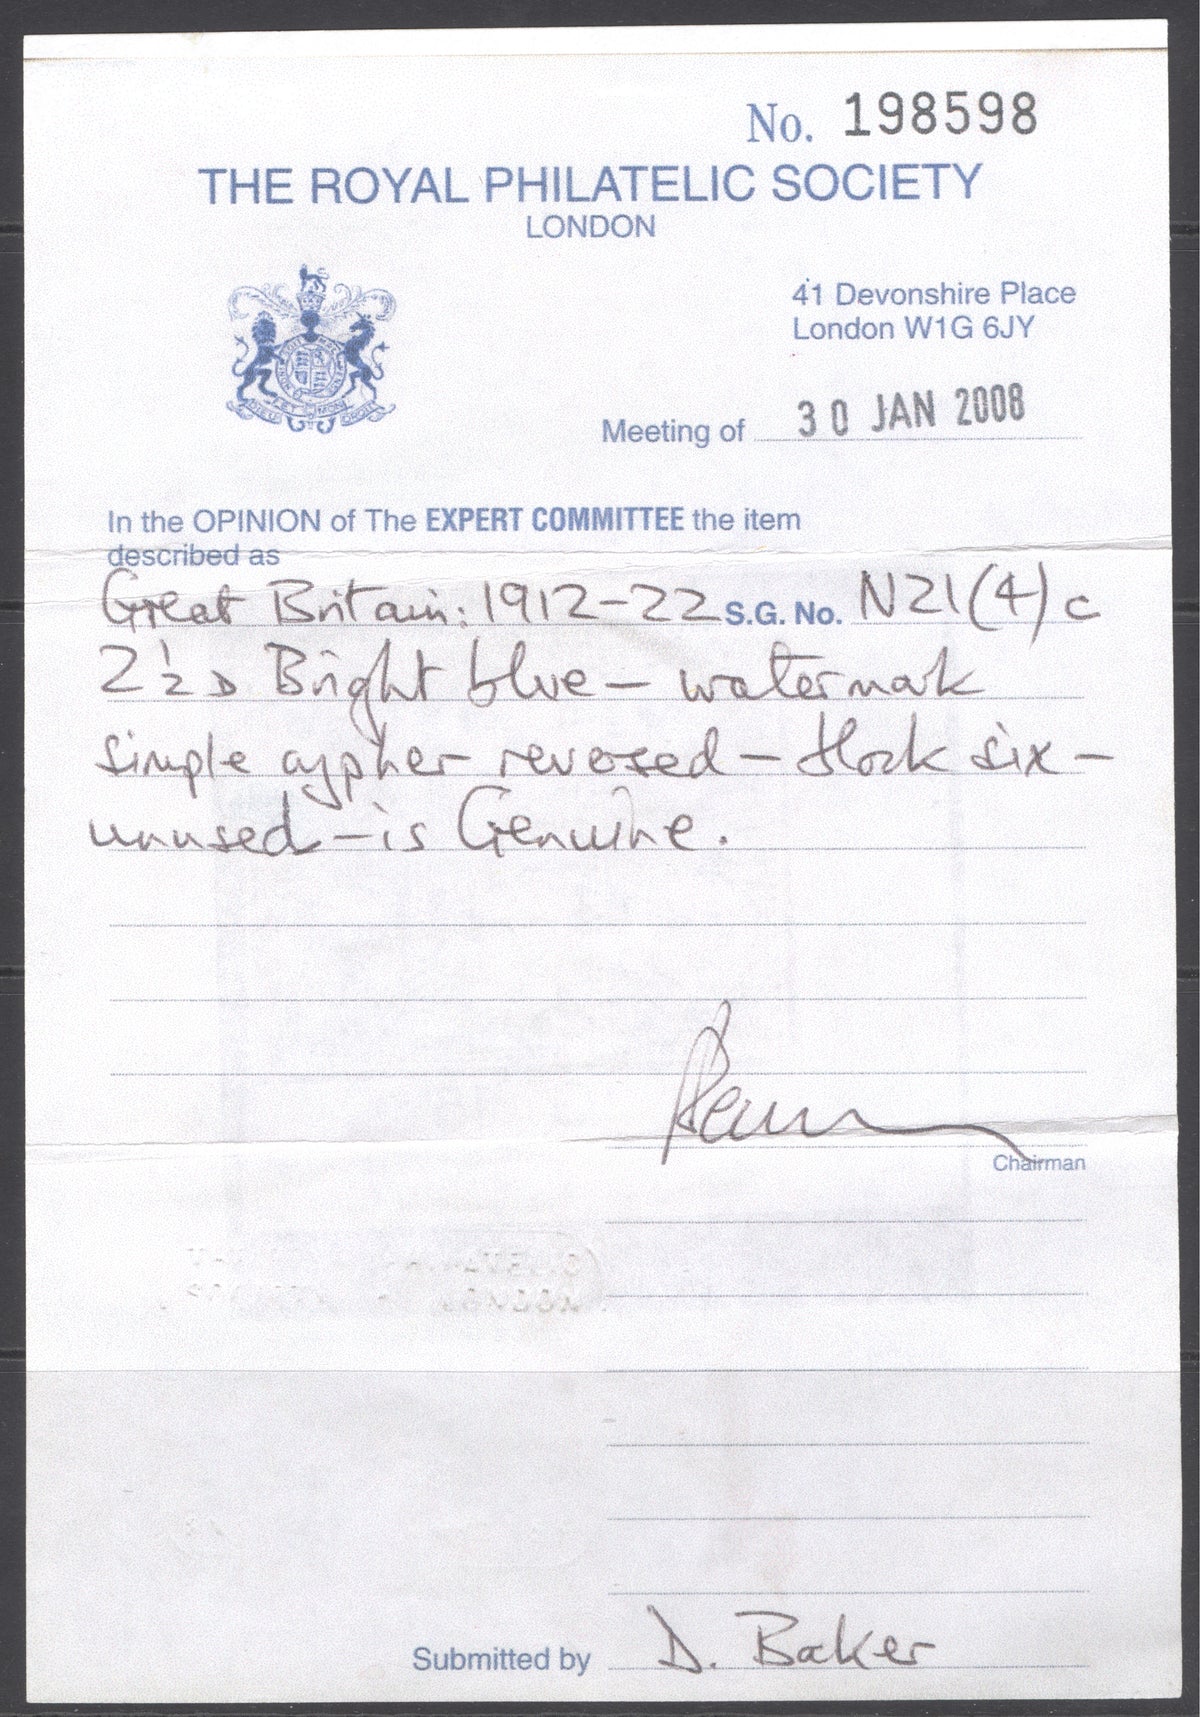 No. 198598
THE ROYAL PHILATELIC SOCIETY
LONDON
41 Devonshire Place
London W1G 6JY
Meeting of 30 JAN 2008
In the OPINION of The EXPERT COMMITTEE the item
described as
Great Britain: 1912-22 S.G. No. N21(4)c
2½D Bright blue – watermark
simple cypher reversed – block six –
unused – is Genuine.
Chairman
Submitted by D. Baker